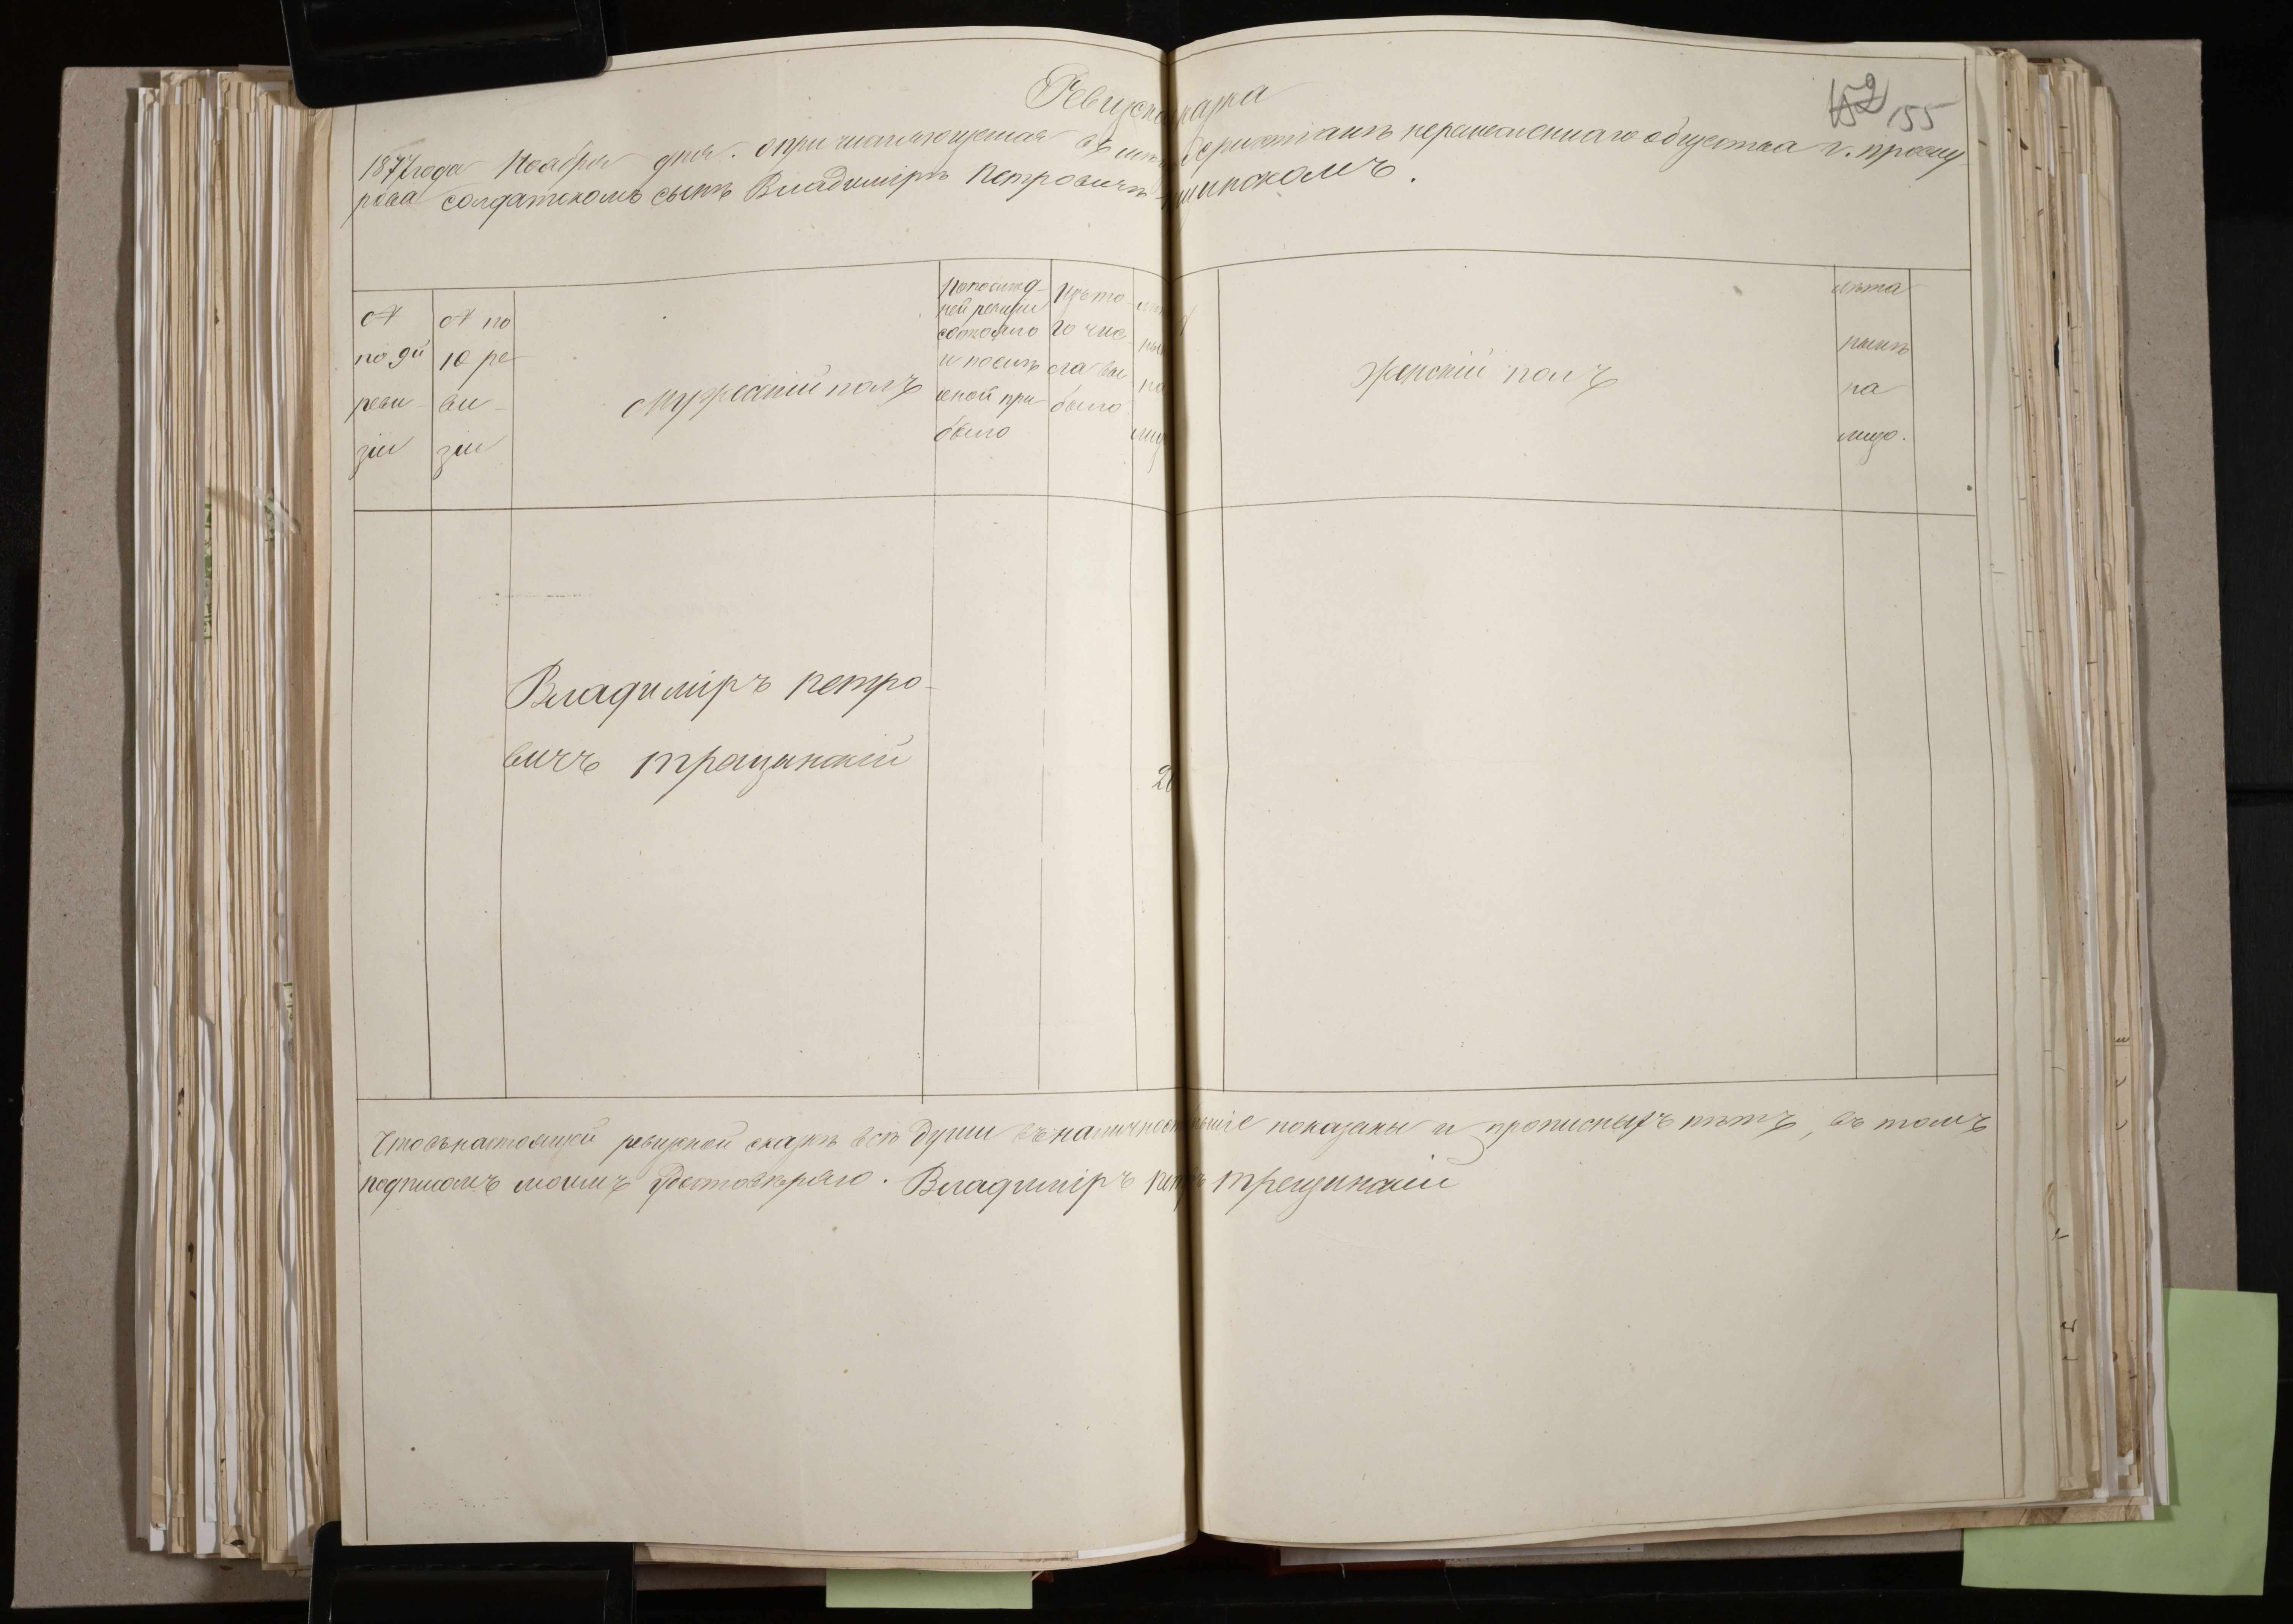 Ревиз. сказка
152 155
1877 года Ноября дня. о причисляющемся въ христіанъ перемененнаго общества г. Проску
рова солдатскомъ сынѣ Владимірѣ Петровичѣ
№
по 9й
реви
зіи
№ по
10 ре
ви-
зіи
Мужескій полъ
По послѣд-
ней ревизіи
состояло
и послѣ
оной при
было
Изъ то
го чис
ла вы
было
Женскій полъ
лѣта
нынѣ
на
лицо.
Владиміръ Петро-
вичъ Трещинскій
Что въ настоящей ревизкой сказкѣ всѣ души въ наличности показаны и прописныхъ нѣтъ, въ томъ
подписомъ моимъ удостовѣряю. Владиміръ Трещинскій